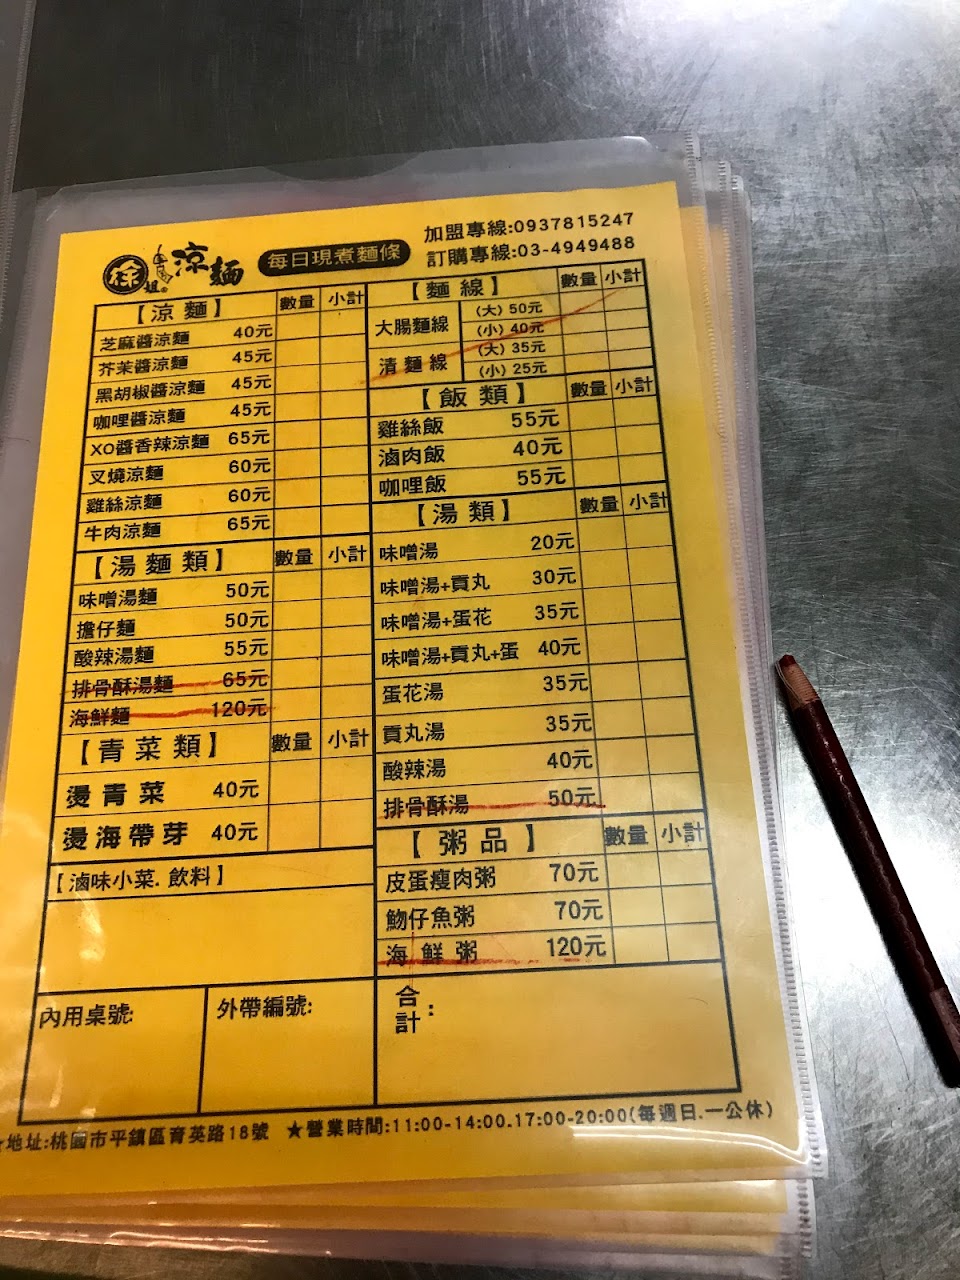 加盟專線:0937815247
訂購專線:03-4949488
徐姐の涼麵 每日現煮麵條
【涼麵】 數量 小計
芝麻醬涼麵 40元
芥茉醬涼麵 45元
黑胡椒醬涼麵 45元
咖哩醬涼麵 45元
XO醬香辣涼麵 65元
叉燒涼麵 60元
雞絲涼麵 60元
牛肉涼麵 65元
【湯麵類】 數量 小計
味噌湯麵 50元
擔仔麵 50元
酸辣湯麵 55元
排骨酥湯麵 65元
海鮮麵 120元
【青菜類】 數量 小計
燙青菜 40元
燙海帶芽 40元
【滷味小菜.飲料】
【麵線】 數量 小計
大腸麵線 (大) 50元
(小) 40元
清麵線 (大) 35元
(小) 25元
【飯類】 數量 小計
雞絲飯 55元
滷肉飯 40元
咖哩飯 55元
【湯類】 數量 小計
味噌湯 20元
味噌湯+貢丸 30元
味噌湯+蛋花 35元
味噌湯+貢丸+蛋 40元
蛋花湯 35元
貢丸湯 35元
酸辣湯 40元
排骨酥湯 50元
【粥品】 數量 小計
皮蛋瘦肉粥 70元
魩仔魚粥 70元
海鮮粥 120元
內用桌號: 外帶編號: 合計:
★地址:桃園市平鎮區育英路18號 ★營業時間:11:00-14:00.17:00-20:00(每週日.一公休)